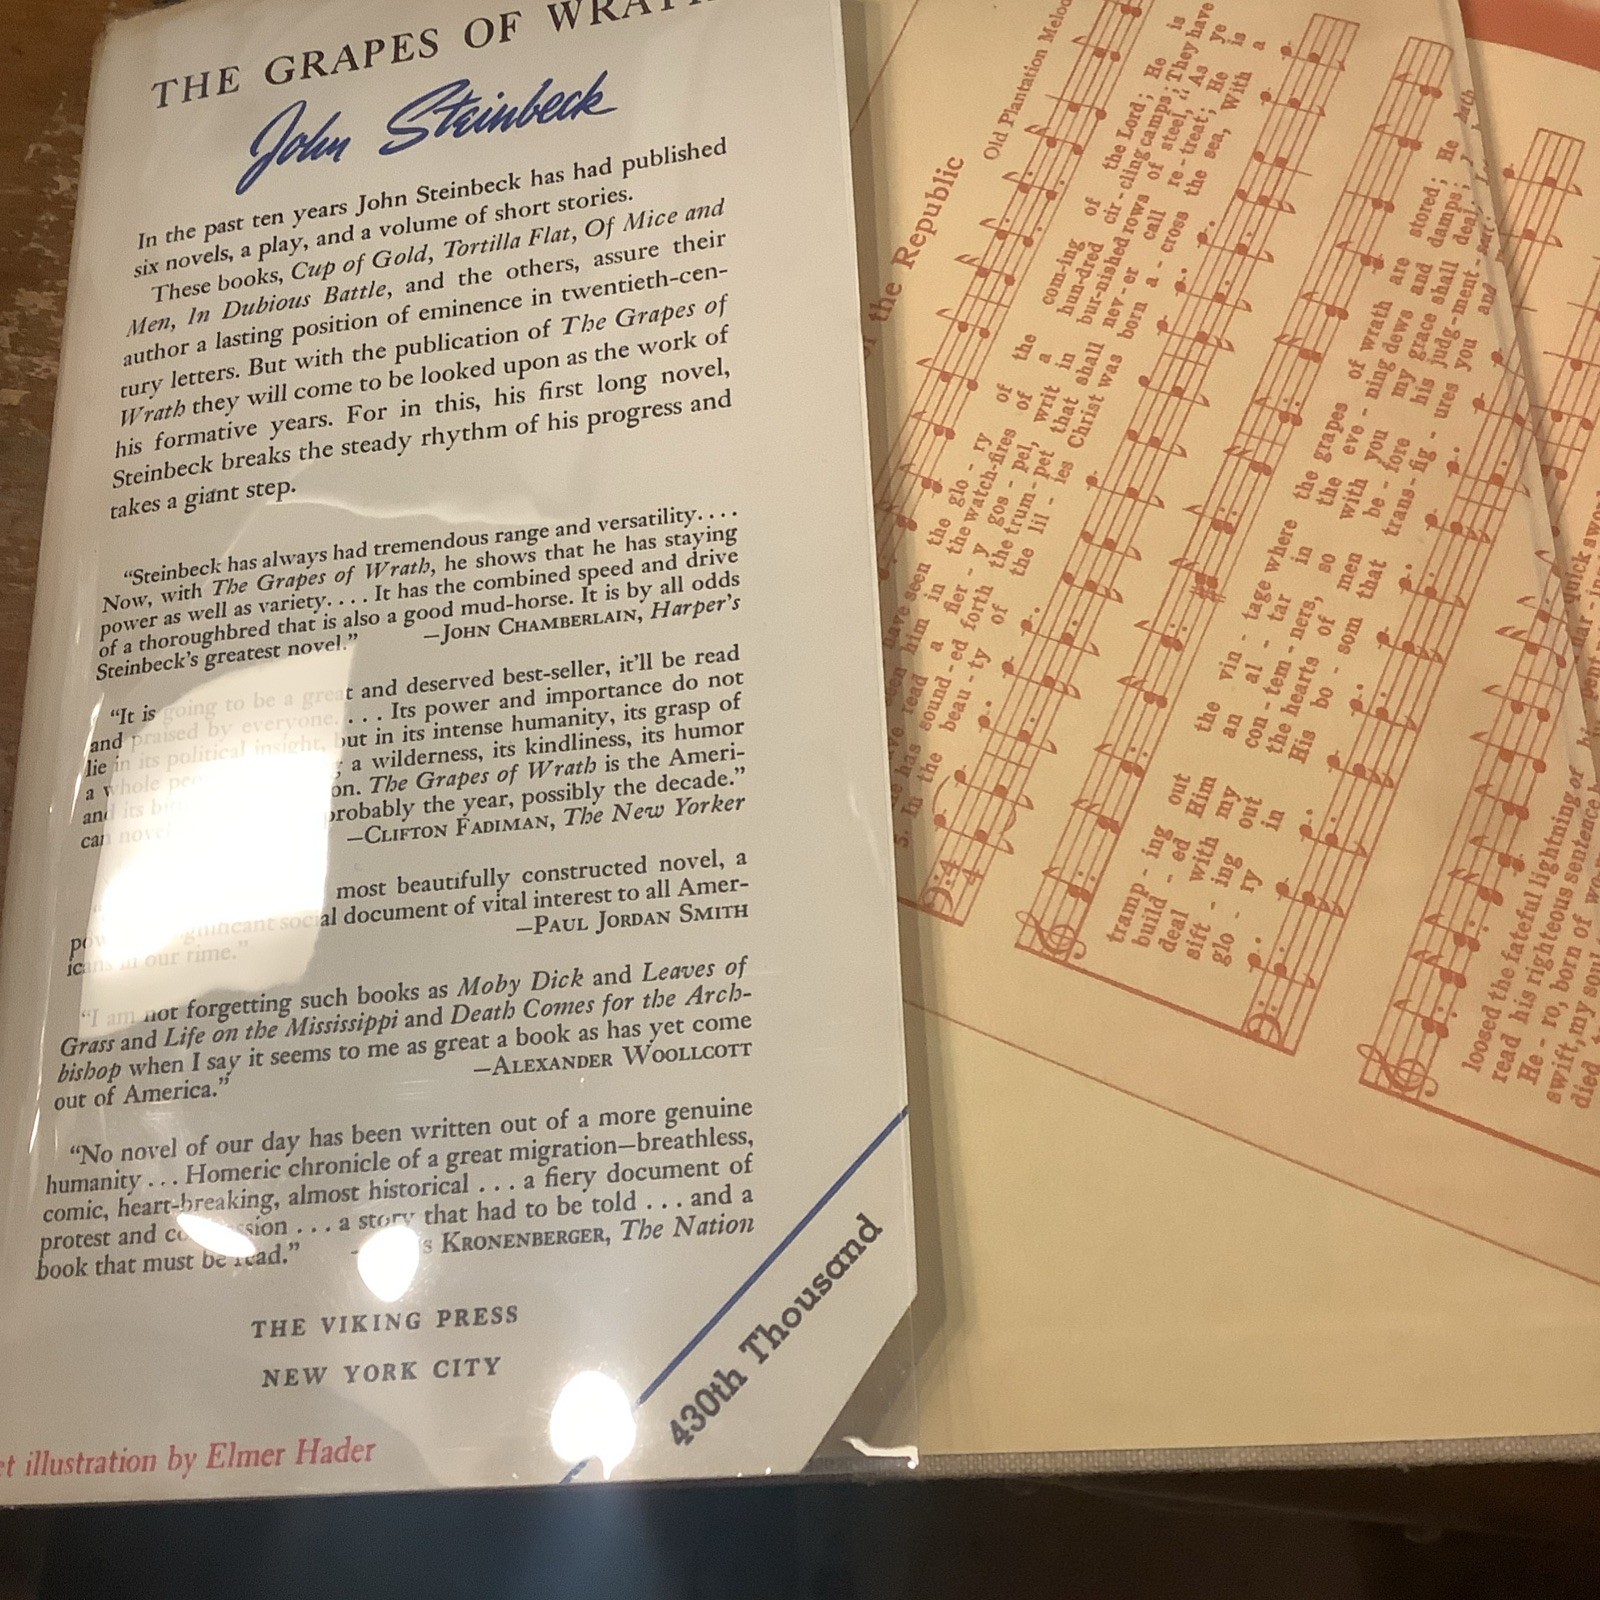 THE GRAPES OF WRATH
John Steinbeck
In the past ten years John Steinbeck has had published
six novels, a play, and a volume of short stories.
These books, Cup of Gold, Tortilla Flat, Of Mice and
Men, In Dubious Battle, and the others, assure their
author a lasting position of eminence in twentieth-cen-
tury letters. But with the publication of The Grapes of
Wrath they will come to be looked upon as the work of
his formative years. For in this, his first long novel,
Steinbeck breaks the steady rhythm of his progress and
takes a giant step.
“Steinbeck has always had tremendous range and versatility....
Now, with The Grapes of Wrath, he shows that he has staying
power as well as variety.... It has the combined speed and drive
of a thoroughbred that is also a good mud-horse. It is by all odds
Steinbeck's greatest novel.” —JOHN CHAMBERLAIN, Harper's
“It is going to be a great and deserved best-seller, it'll be read
and praised by everyone. ... Its power and importance do not
lie in its political insight, but in its intense humanity, its grasp of
a whole a wilderness, its kindliness, its humor
and its The Grapes of Wrath is the Ameri-
can novel probably the year, possibly the decade.”
—CLIFTON FADIMAN, The New Yorker
most beautifully constructed novel, a
social document of vital interest to all Amer-
icans in our time.” —PAUL JORDAN SMITH
“I am not forgetting such books as Moby Dick and Leaves of
Grass and Life on the Mississippi and Death Comes for the Arch-
bishop when I say it seems to me as great a book as has yet come
out of America.” —ALEXANDER WOOLLCOTT
“No novel of our day has been written out of a more genuine
humanity ... Homeric chronicle of a great migration—breathless,
comic, heart-breaking, almost historical ... a fiery document of
protest and ... a story that had to be told ... and a
book that must be read.” KRONENBERGER, The Nation
THE VIKING PRESS
NEW YORK CITY
illustration by Elmer Hader
430th Thousand
the Republic
Old Plantation
have seen the glo - ry of the com-ing of the Lord; He is
seen him in the watch-fires of a hun-dred cir-cling camps; They have
read a fier - y gos - pel, writ in bur-nished rows of steel, “As ye
has sound-ed forth the trum-pet that shall nev-er call re-treat; He is
5. In the beau-ty of the lil - ies Christ was born a-cross the sea, With a
tramp - ing out the vin - tage where the grapes of wrath are stored; He hath
build - ed Him an al - tar in the eve - ning dews and damps;
deal with my con - tem - ners, so with you my grace shall deal;
sift - ing out the hearts of men be - fore his judg - ment - seat;
glo - ry in His bo - som that trans - fig - ures you and
loosed the fateful lightning of quick
read his righteous sentence
He - ro, born of
swift, my soul
died